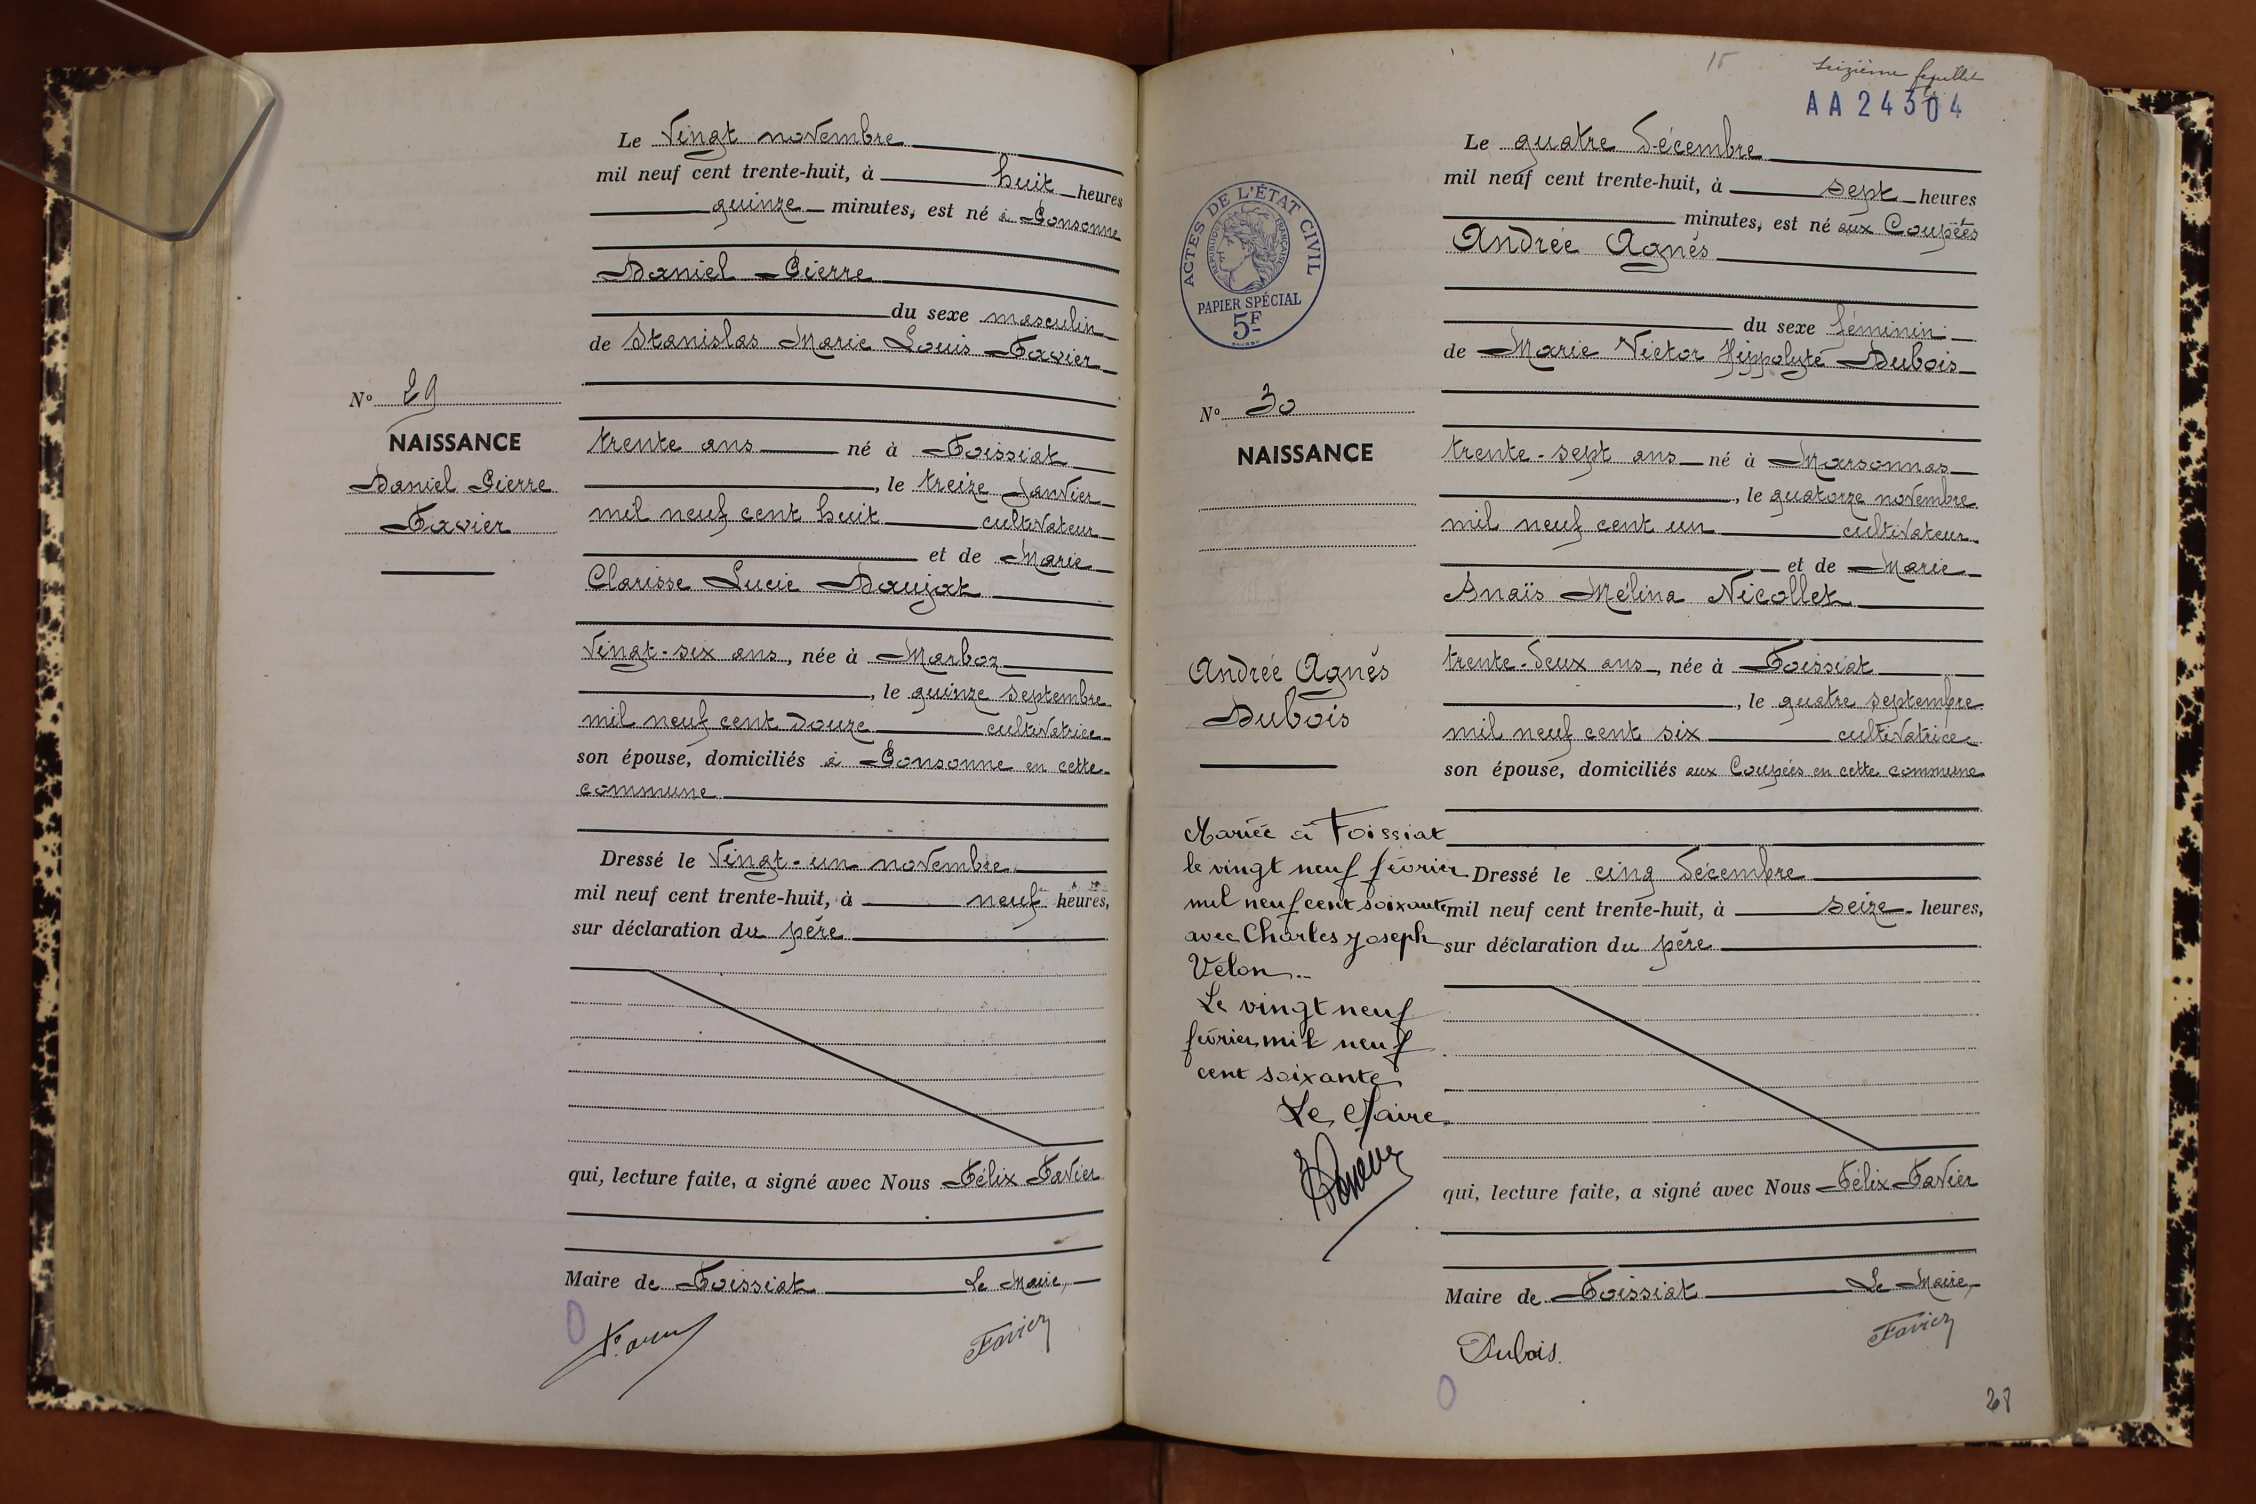 Le Vingt novembre
mil neuf cent trente-huit, à huit heures
quinze minutes, est né à Consonne
Daniel Pierre
du sexe masculin
de Stanislas Marie Louis Favier
N° 29
NAISSANCE
Daniel Pierre
Favier
trente ans né à Foissiat
, le treize Janvier
mil neuf cent huit cultivateur
et de Marie
Clarisse Lucie Daujat
Vingt-six ans, née à Marboz
, le quinze septembre
mil neuf cent douze cultivatrice
son épouse, domiciliés à Consonne en cette
commune
Dressé le Vingt-un novembre
mil neuf cent trente-huit, à neuf heures,
sur déclaration du père
qui, lecture faite, a signé avec Nous Félix Favier
Maire de Foissiat Le Maire,
Favier
15
seizième feuillet
AA24304
Le quatre Décembre
mil neuf cent trente-huit, à sept heures
minutes, est né aux Coupées
Andrée Agnès
du sexe féminin
de Marie Victor Hippolyte Dubois
ACTES DE L'ÉTAT CIVIL
RÉPUBLIQUE FRANÇAISE
PAPIER SPÉCIAL
5F
N° 30
NAISSANCE
Andrée Agnès
Dubois
trente-sept ans né à Marsonnas
, le quatorze novembre
mil neuf cent un cultivateur
et de Marie
Anaïs Mélina Nicollet
trente-Deux ans, née à Foissiat
, le quatre septembre
mil neuf cent six cultivatrice
son épouse, domiciliés aux Coupées en cette commune
Mariée à Foissiat
le vingt neuf février
mil neuf cent soixante
avec Charles Joseph
Velon
Le vingt neuf
février mil neuf
cent soixante
Le Maire
Dressé le cinq Décembre
mil neuf cent trente-huit, à seize heures,
sur déclaration du père
qui, lecture faite, a signé avec Nous Félix Favier
Maire de Foissiat Le Maire,
Dubois.
Favier
28